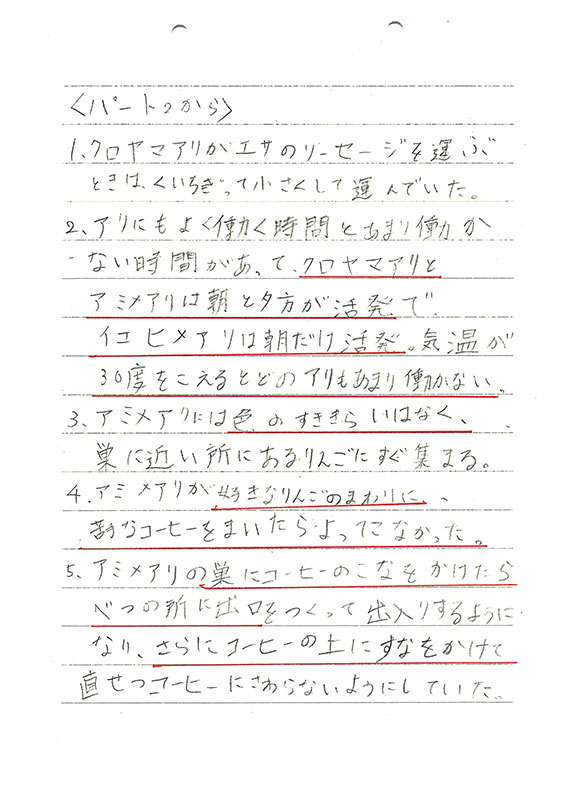 〈パート2から〉
1、クロヤマアリがエサのソーセージを運ぶ
ときは、くいちぎって小さくして運んでいた。
2、アリにもよく働く時間とあまり働か
ない時間があって、クロヤマアリと
アミメアリは朝と夕方が活発で
イエヒメアリは朝だけ活発。気温が
30度をこえるとどのアリもあまり働かない。
3、アミメアリには色のすききらいはなく、
巣に近い所にあるりんごにすぐ集まる。
4、アミメアリが好きなりんごのまわりに、
苦手なコーヒーをまいたらよってこなかった。
5、アミメアリの巣にコーヒーのこなをかけたら
べつの所に出口をつくって出入りするように
なり、さらにコーヒーの上にすなをかけて
直せつコーヒーにさわらないようにしていた。